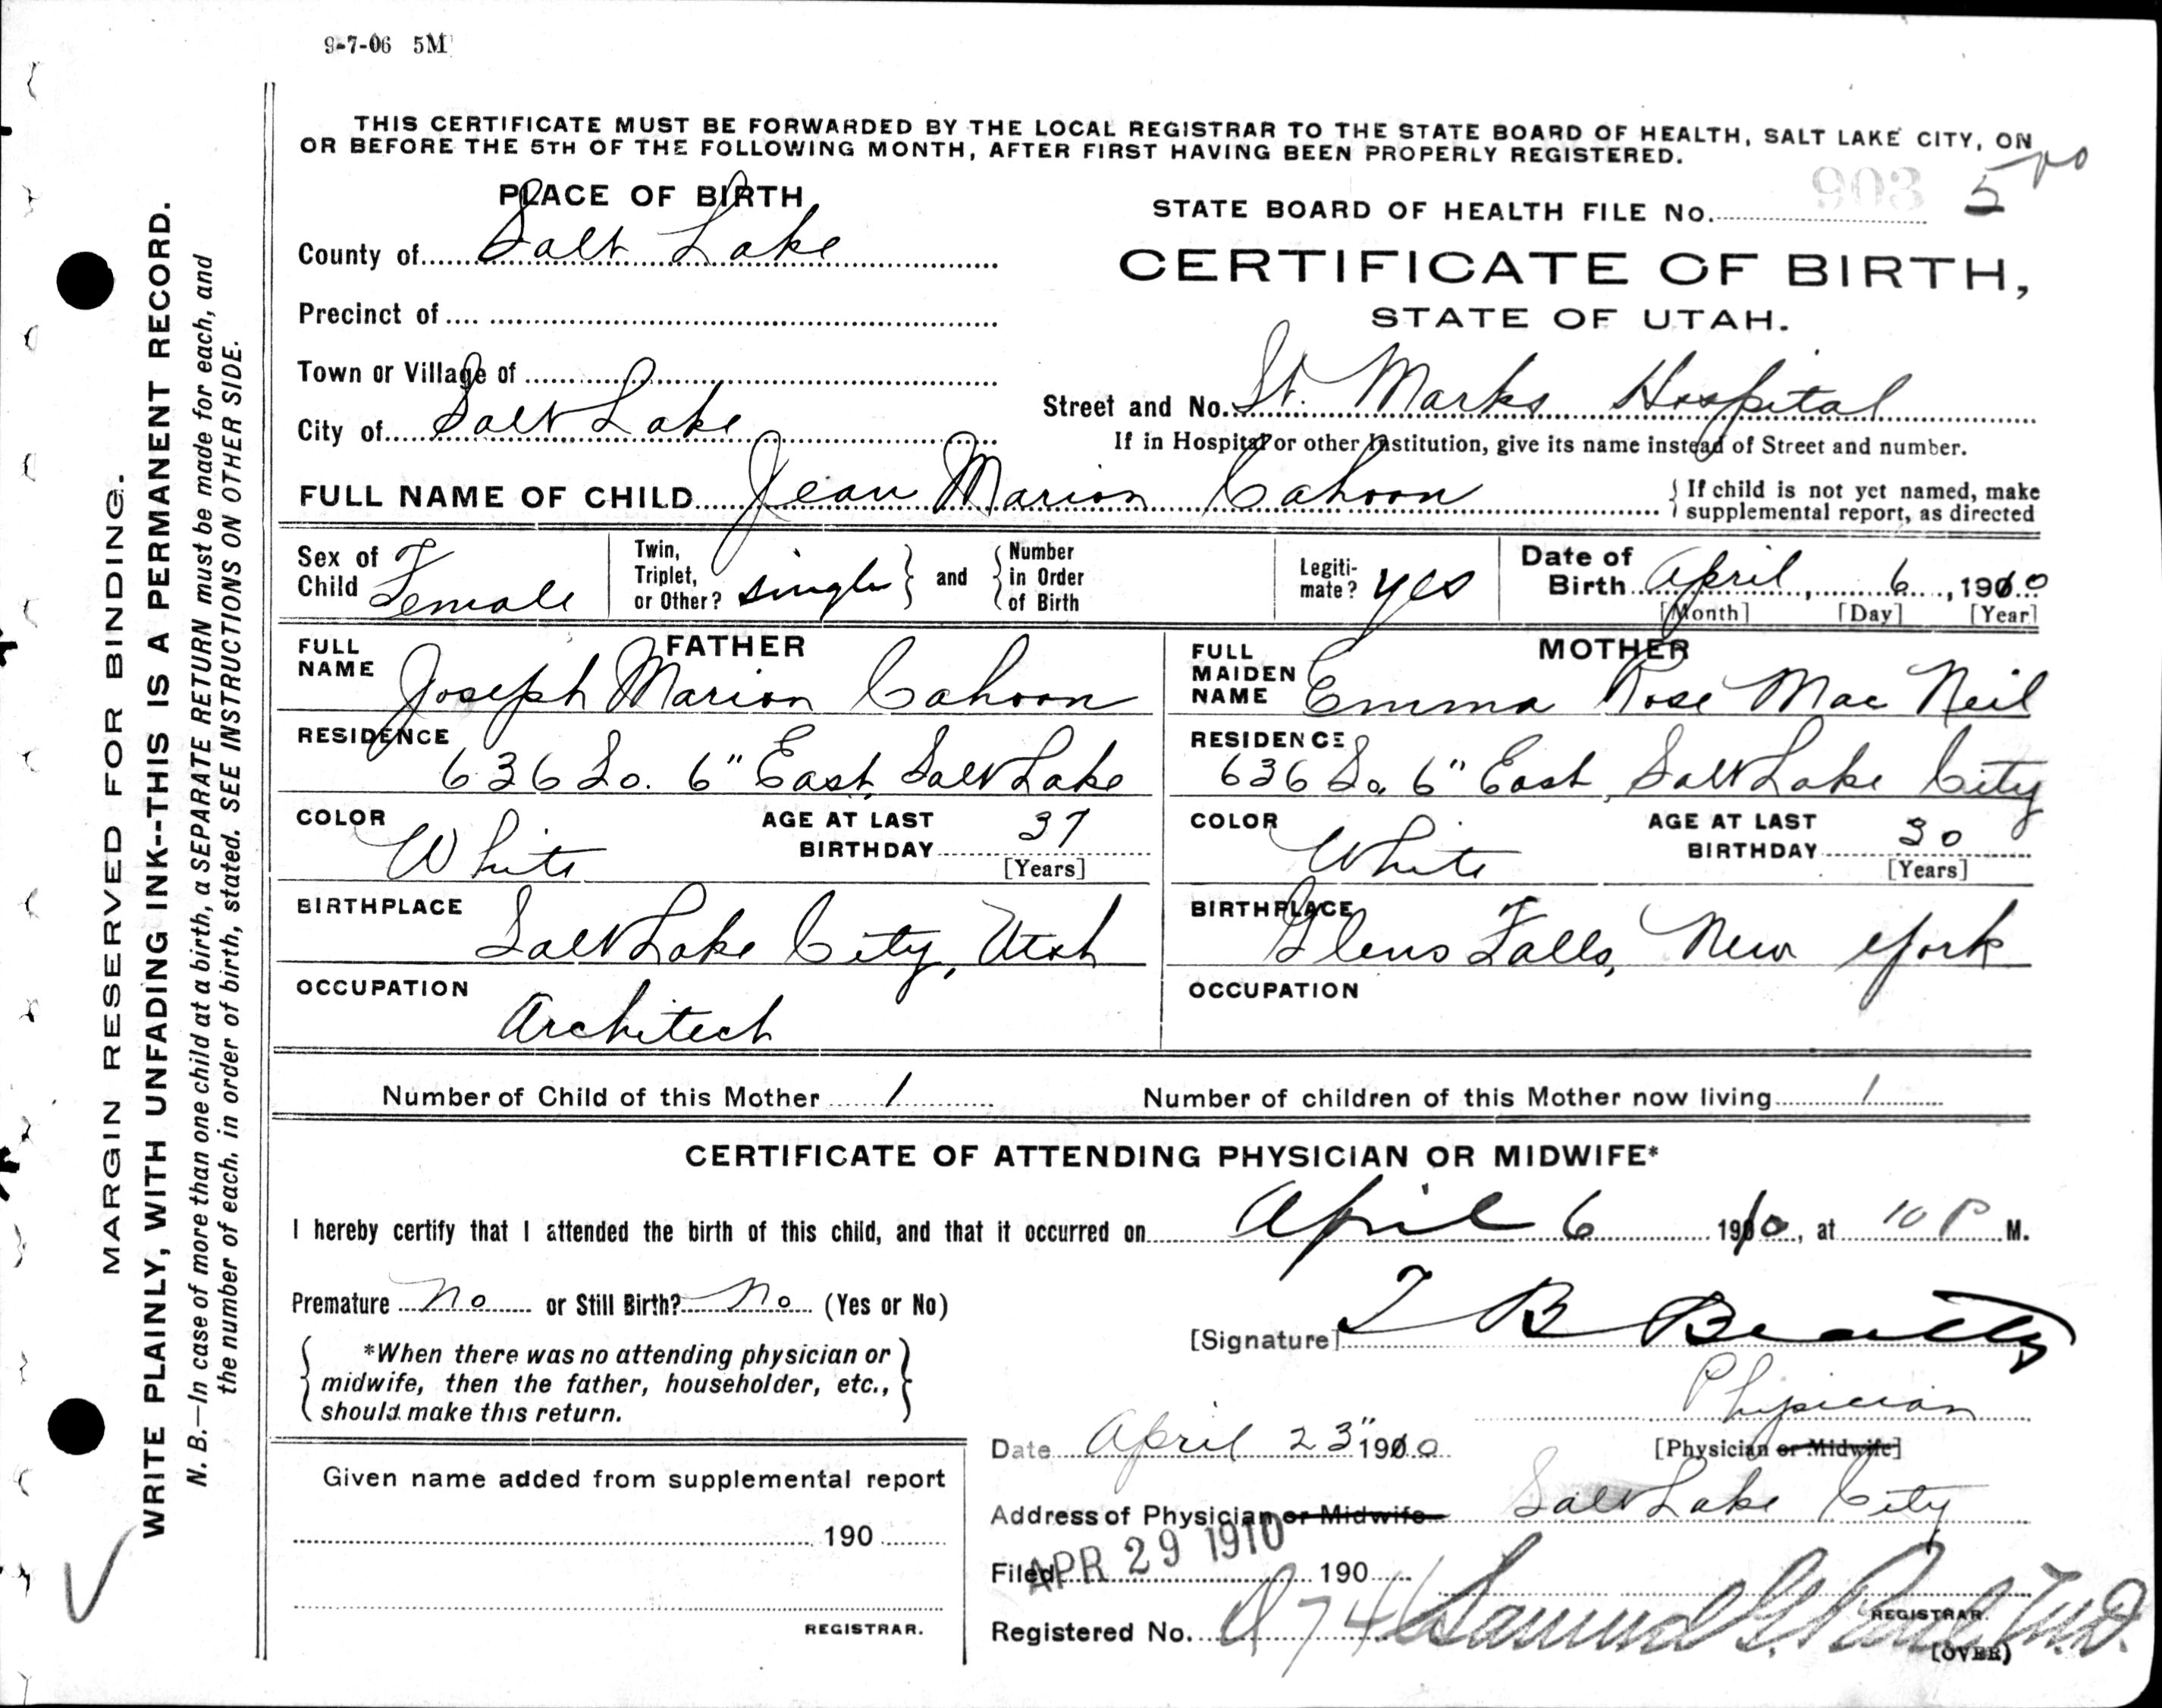 9-7-06 5M
THIS CERTIFICATE MUST BE FORWARDED BY THE LOCAL REGISTRAR TO THE STATE BOARD OF HEALTH, SALT LAKE CITY, ON
OR BEFORE THE 5TH OF THE FOLLOWING MONTH, AFTER FIRST HAVING BEEN PROPERLY REGISTERED.
PLACE OF BIRTH
STATE BOARD OF HEALTH FILE No. 903 5
County of Salt Lake
CERTIFICATE OF BIRTH,
Precinct of
STATE OF UTAH.
Town or Village of
City of Salt Lake
Street and No. St. Marks Hospital
If in Hospital or other Institution, give its name instead of Street and number.
FULL NAME OF CHILD Jean Marion Cahoon
If child is not yet named, make
supplemental report, as directed
Sex of Child Female
Twin, Triplet, or Other? single and Number in Order of Birth
Legiti-mate? yes
Date of Birth April, 6, 1910
[Month] [Day] [Year]
FATHER
FULL NAME Joseph Marion Cahoon
RESIDENCE 636 So. 6" East, Salt Lake
COLOR White
AGE AT LAST BIRTHDAY 37
[Years]
BIRTHPLACE Salt Lake City, Utah
OCCUPATION Architect
MOTHER
FULL MAIDEN NAME Emma Rose Mac Neil
RESIDENCE 636 So. 6" East, Salt Lake City
COLOR White
AGE AT LAST BIRTHDAY 30
[Years]
BIRTHPLACE Glens Falls, New York
OCCUPATION
Number of Child of this Mother 1
Number of children of this Mother now living 1
CERTIFICATE OF ATTENDING PHYSICIAN OR MIDWIFE*
I hereby certify that I attended the birth of this child, and that it occurred on April 6 1910, at 10 P M.
Premature No or Still Birth? No (Yes or No)
[Signature] T B Beatty
*When there was no attending physician or
midwife, then the father, householder, etc.,
should make this return.
Physician
[Physician or Midwife]
Date April 23" 1910
Address of Physician or Midwife Salt Lake City
Given name added from supplemental report
190
REGISTRAR.
Filed APR 29 1910 190
Registered No. 874 Samuel G. Paul M.D.
REGISTRAR.
(OVER)
MARGIN RESERVED FOR BINDING.
WRITE PLAINLY, WITH UNFADING INK--THIS IS A PERMANENT RECORD.
N. B.—In case of more than one child at a birth, a SEPARATE RETURN must be made for each, and
the number of each, in order of birth, stated. SEE INSTRUCTIONS ON OTHER SIDE.